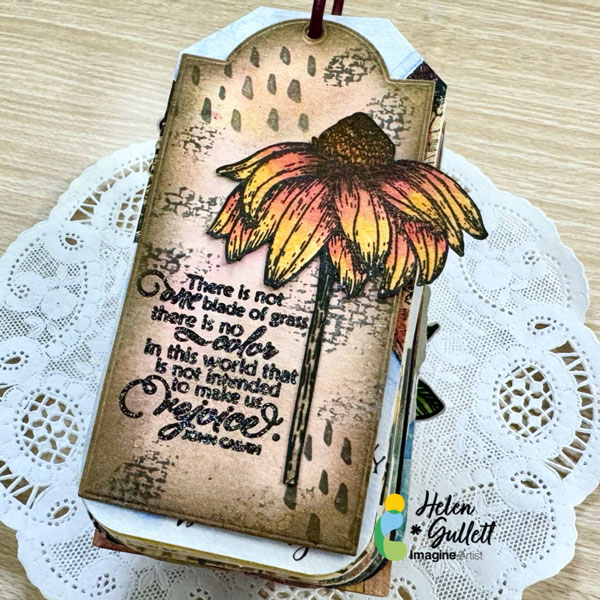 There is not
one blade of grass,
there is no
color
in this world that
is not intended
to make us
rejoice.
JOHN CALVIN
Helen
* Gullett
Imagine Artist